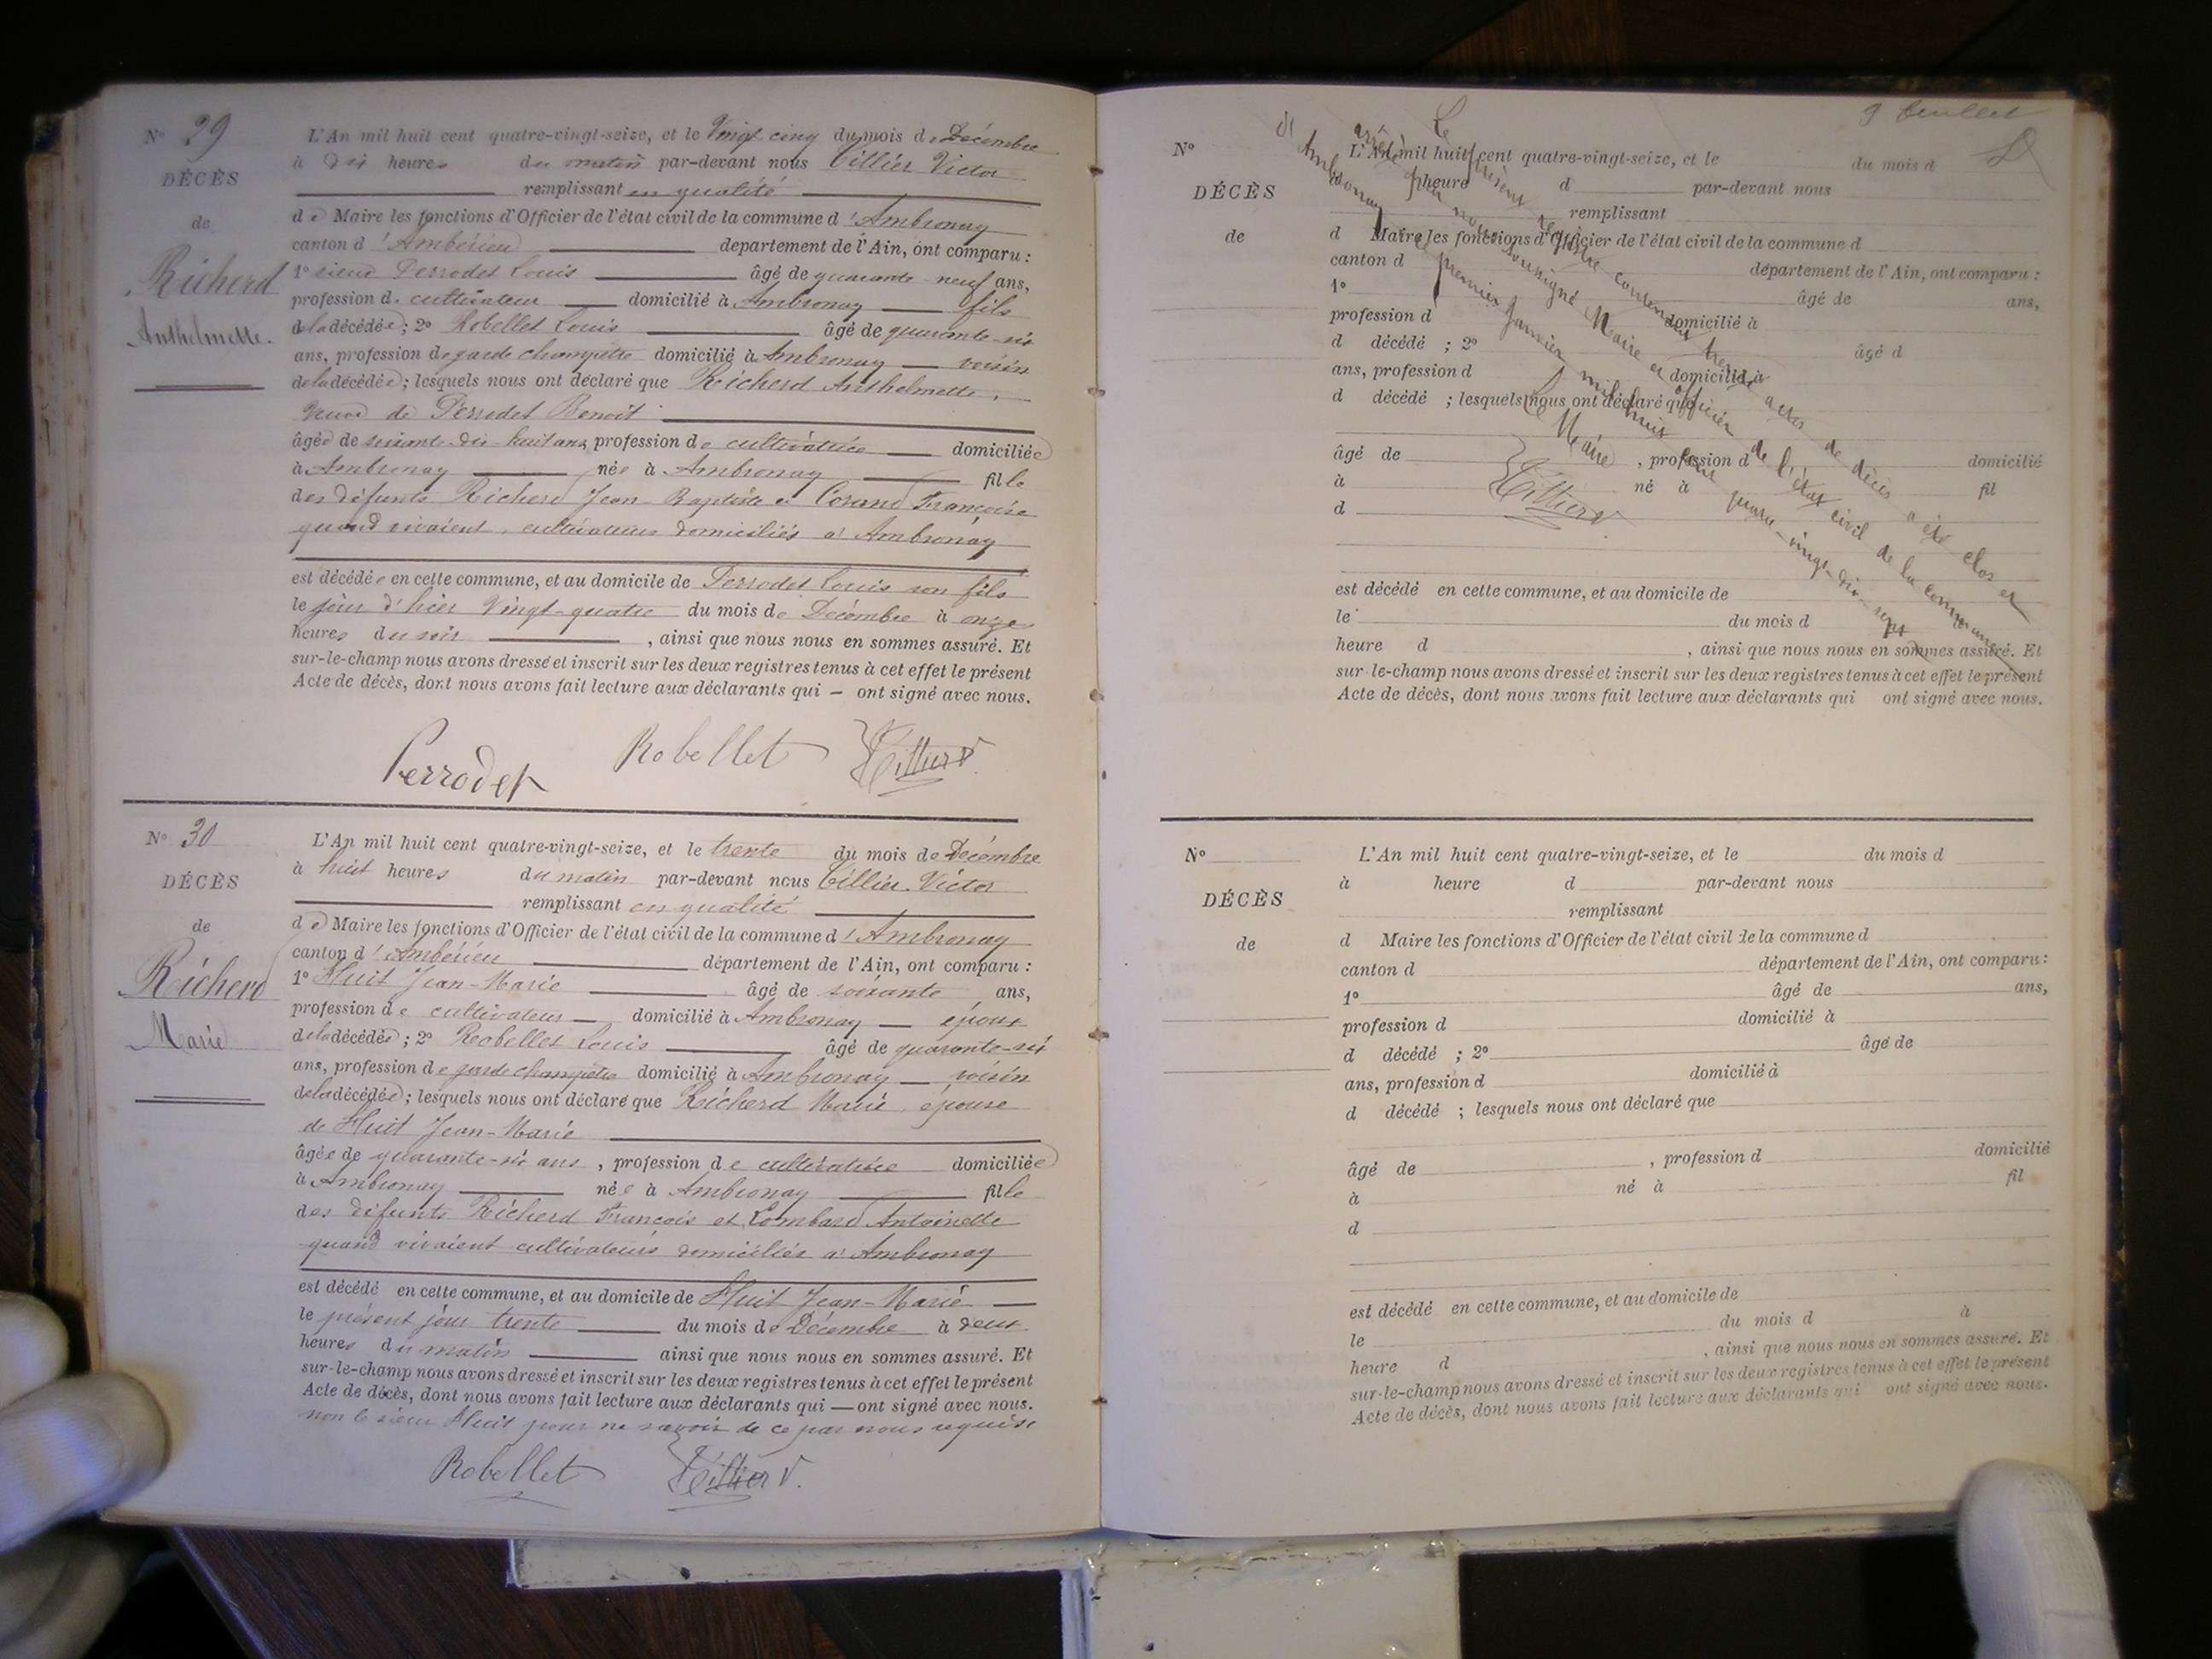 N° 29
DÉCÈS
de
Richerd
Anthelmette.
L'An mil huit cent quatre-vingt-seize, et le Vingt cinq du mois de Décembre
à dix heures du matin par-devant nous Tillier Victor
remplissant en qualité
de Maire les fonctions d'Officier de l'état civil de la commune d'Ambronay
canton d'Ambérieu département de l'Ain, ont comparu :
1° sieur Perrodet Louis âgé de quarante neuf ans,
profession de cultivateur domicilié à Ambronay fils
de la décédée ; 2° Robellet Louis âgé de quarante-six
ans, profession de garde champêtre domicilié à Ambronay voisin
de la décédée ; lesquels nous ont déclaré que Richerd Anthelmette,
veuve de Perrodet Benoit
âgée de soixante-dix huit ans, profession de cultivatrice domiciliée
à Ambronay née à Ambronay fille
des défunts Richerd Jean-Baptiste et Françoise
quand vivaient, cultivateurs domiciliés à Ambronay
est décédée en cette commune, et au domicile de Perrodet Louis son fils
le jour d'hier Vingt-quatre du mois de Décembre à onze
heures du soir , ainsi que nous nous en sommes assuré. Et
sur-le-champ nous avons dressé et inscrit sur les deux registres tenus à cet effet le présent
Acte de décès, dont nous avons fait lecture aux déclarants qui — ont signé avec nous.
Perrodet Robellet Tillier V
N° 30
DÉCÈS
de
Richerd
Marie
L'An mil huit cent quatre-vingt-seize, et le trente du mois de Décembre
à huit heures du matin par-devant nous Tillier Victor
remplissant en qualité
de Maire les fonctions d'Officier de l'état civil de la commune d'Ambronay
canton d'Ambérieu département de l'Ain, ont comparu :
1° Huit Jean-Marie âgé de soixante ans,
profession de cultivateur domicilié à Ambronay époux
de la décédée ; 2° Robellet Louis âgé de quarante-six
ans, profession de garde champêtre domicilié à Ambronay voisin
de la décédée ; lesquels nous ont déclaré que Richerd Marie épouse
de Huit Jean-Marie
âgée de quarante-six ans , profession de cultivatrice domiciliée
à Ambronay née à Ambronay fille
des défunts Richerd François et Lombard Antoinette
quand vivaient cultivateurs domiciliés à Ambronay
est décédé en cette commune, et au domicile de Huit Jean-Marie
le présent jour trente du mois de Décembre à deux
heures du matin ainsi que nous nous en sommes assuré. Et
sur-le-champ nous avons dressé et inscrit sur les deux registres tenus à cet effet le présent
Acte de décès, dont nous avons fait lecture aux déclarants qui — ont signé avec nous.
non le sieur Huit pour ne savoir de ce par nous requis
Robellet Tillier V.
9
Le présent registre contenant trente actes de décès a été clos et
arrêté par nous soussigné Maire et officier de l'état civil de la commune
d'Ambronay le premier janvier mil huit cent quatre-vingt-dix-sept
Le Maire
Tillier V
N°
DÉCÈS
de
L'An mil huit cent quatre-vingt-seize, et le du mois d
à heure d par-devant nous
remplissant
d Maire les fonctions d'Officier de l'état civil de la commune d
canton d département de l'Ain, ont comparu :
1° âgé de ans,
profession d domicilié à
d décédé ; 2° âgé d
ans, profession d domicilié à
d décédé ; lesquels nous ont déclaré que
âgé de , profession d domicilié
à né à fil
d
est décédé en cette commune, et au domicile de
le du mois d
heure d , ainsi que nous nous en sommes assuré. Et
sur-le-champ nous avons dressé et inscrit sur les deux registres tenus à cet effet le présent
Acte de décès, dont nous avons fait lecture aux déclarants qui ont signé avec nous.
N°
DÉCÈS
de
L'An mil huit cent quatre-vingt-seize, et le du mois d
à heure d par-devant nous
remplissant
d Maire les fonctions d'Officier de l'état civil de la commune d
canton d département de l'Ain, ont comparu :
1° âgé de ans,
profession d domicilié à
d décédé ; 2° âgé de
ans, profession d domicilié à
d décédé ; lesquels nous ont déclaré que
âgé de , profession d domicilié
à né à fil
d
est décédé en cette commune, et au domicile de
le du mois d à
heure d , ainsi que nous nous en sommes assuré. Et
sur-le-champ nous avons dressé et inscrit sur les deux registres tenus à cet effet le présent
Acte de décès, dont nous avons fait lecture aux déclarants qui ont signé avec nous.